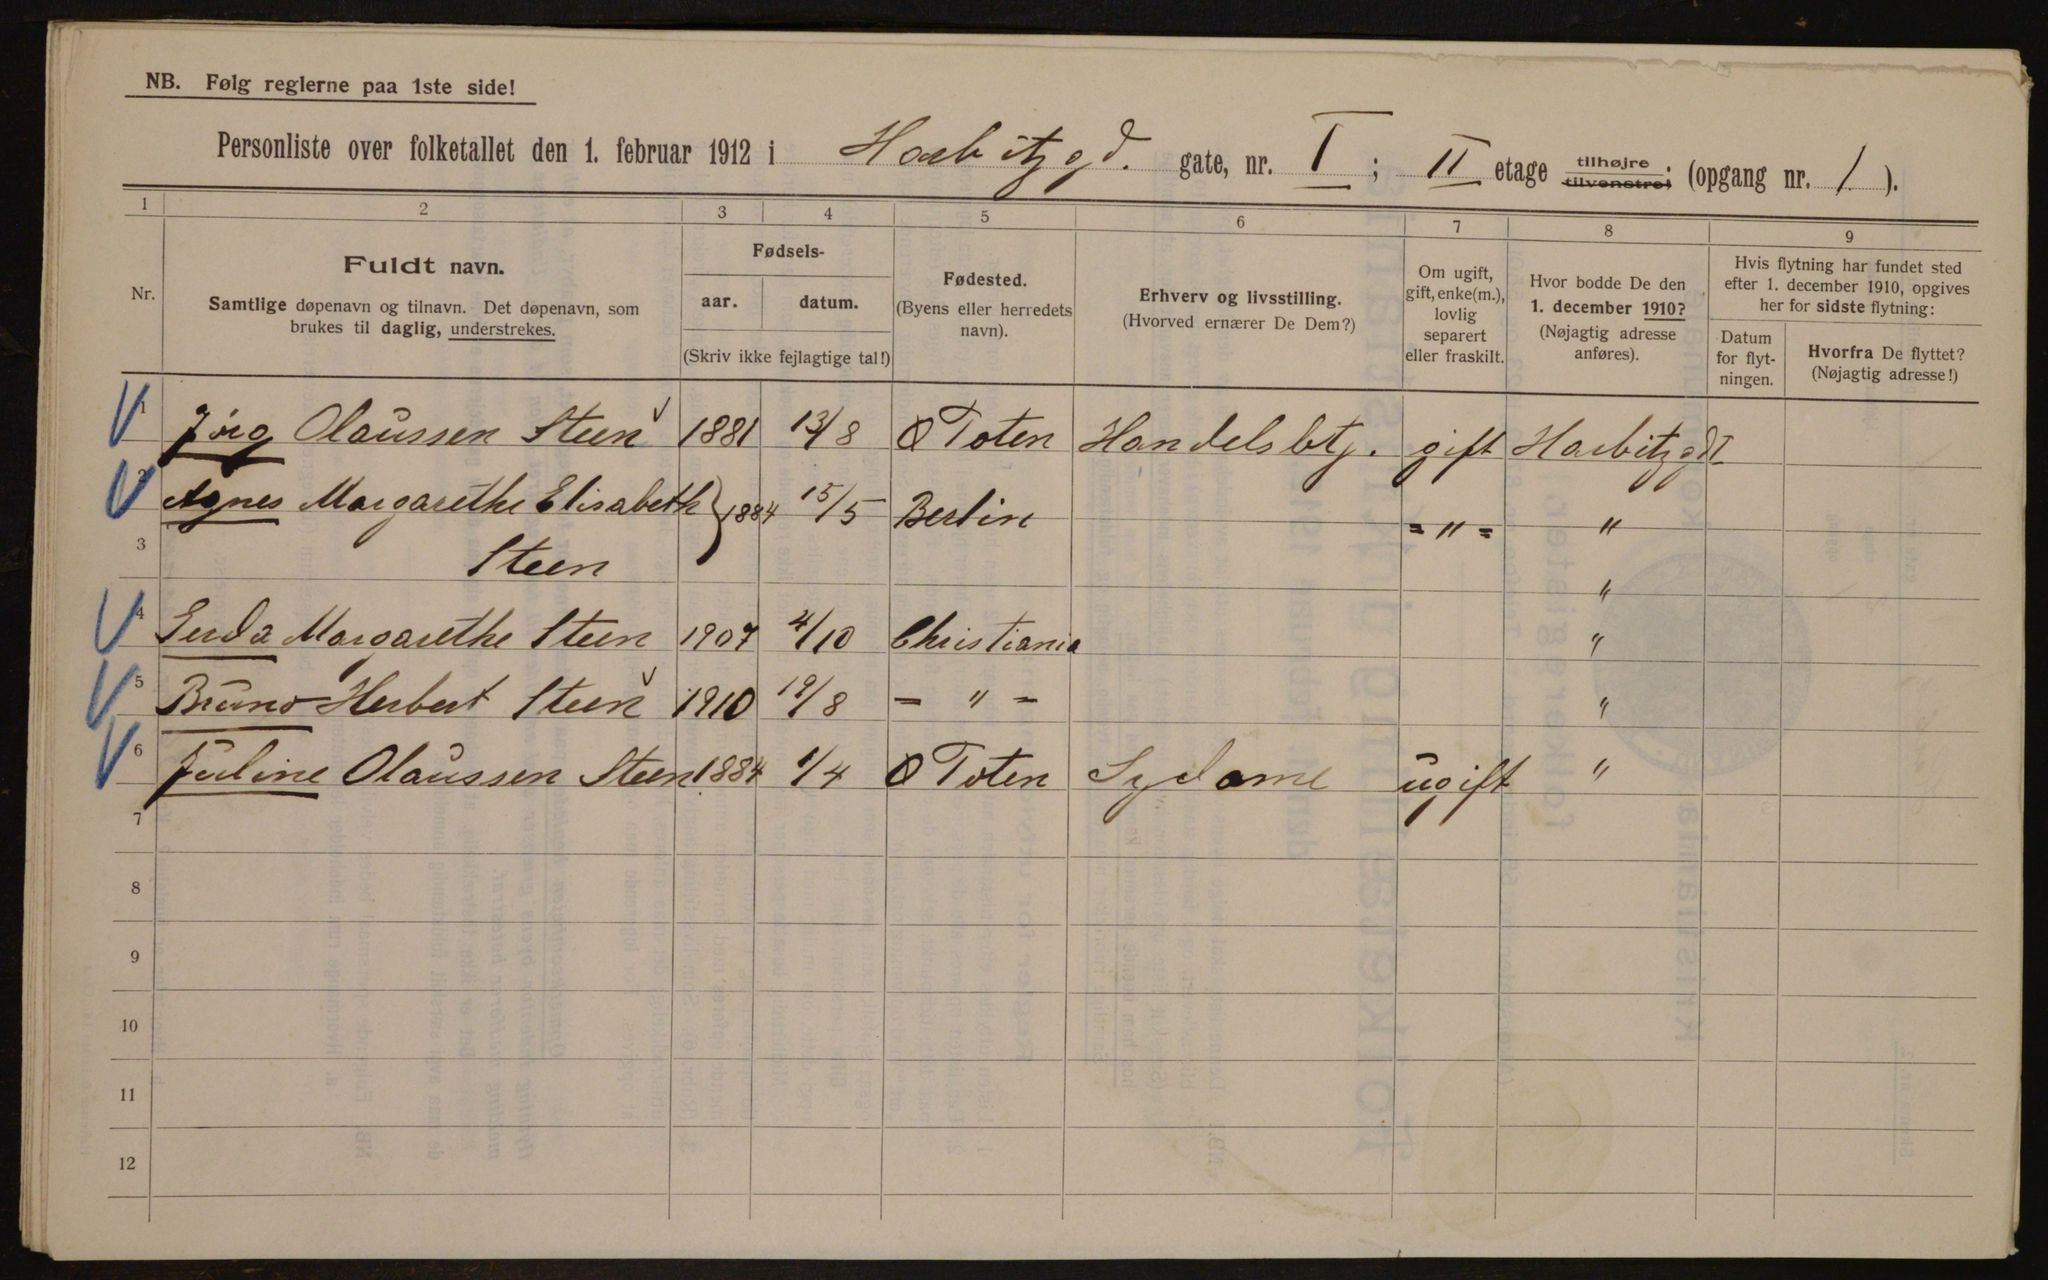 NB. Følg reglerne paa 1ste side!
Personliste over folketallet den 1. februar 1912 i Harbitzgd. gate, nr. I ; II etage tilhøjre tilvenstre; (opgang nr. 1 ).
1 2 3 4 5 6 7 8 9
Nr.
Fuldt navn.
Samtlige døpenavn og tilnavn. Det døpenavn, som
brukes til daglig, understrekes.
Fødsels-
aar. datum.
(Skriv ikke fejlagtige tal!)
Fødested.
(Byens eller herredets
navn).
Erhverv og livsstilling.
(Hvorved ernærer De Dem?)
Om ugift,
gift, enke(m.),
lovlig
separert
eller fraskilt.
Hvor bodde De den
1. december 1910?
(Nøjagtig adresse
anføres).
Hvis flytning har fundet sted
efter 1. december 1910, opgives
her for sidste flytning:
Datum
for flyt-
ningen.
Hvorfra De flyttet?
(Nøjagtig adresse!)
1 Jörg Olaussen Steen 1881 13/8 Ø Toten Handelsbtj. gift Harbitzgd I
2 Agnes Margarethe Elisabeth } 1884 15/5 Berlin = " = "
3 Steen "
4 Gerda Margarethe Steen 1907 4/10 Christiania "
5 Bruno Herbert Steen 1910 19/8 – " – "
6 Juline Olaussen Steen 1884 1/4 Ø Toten Sydame ugift "
7
8
9
10
11
12